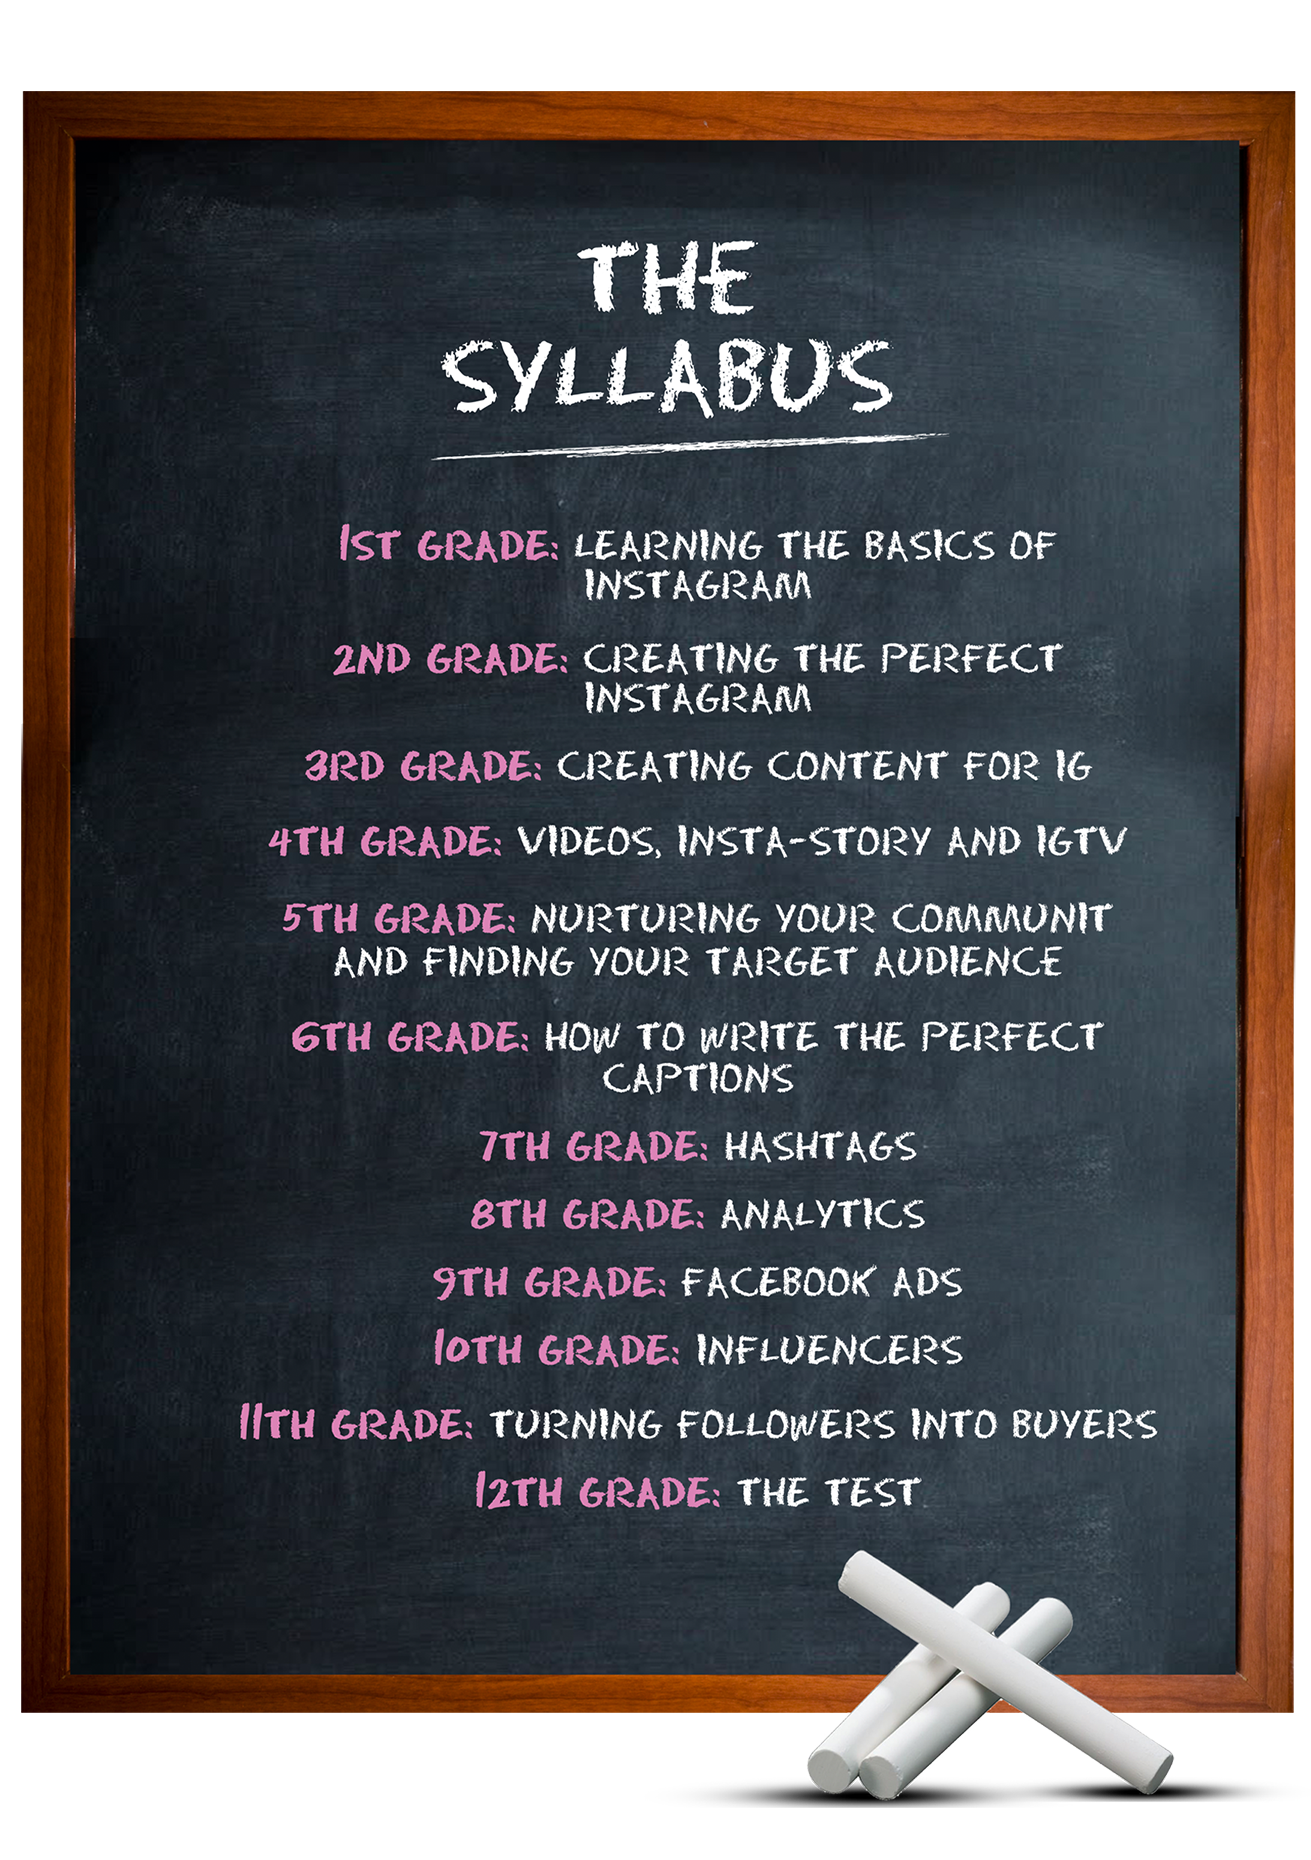 THE
SYLLABUS
1ST GRADE: LEARNING THE BASICS OF
INSTAGRAM
2ND GRADE: CREATING THE PERFECT
INSTAGRAM
3RD GRADE: CREATING CONTENT FOR IG
4TH GRADE: VIDEOS, INSTA-STORY AND IGTV
5TH GRADE: NURTURING YOUR COMMUNIT
AND FINDING YOUR TARGET AUDIENCE
6TH GRADE: HOW TO WRITE THE PERFECT
CAPTIONS
7TH GRADE: HASHTAGS
8TH GRADE: ANALYTICS
9TH GRADE: FACEBOOK ADS
10TH GRADE: INFLUENCERS
11TH GRADE: TURNING FOLLOWERS INTO BUYERS
12TH GRADE: THE TEST